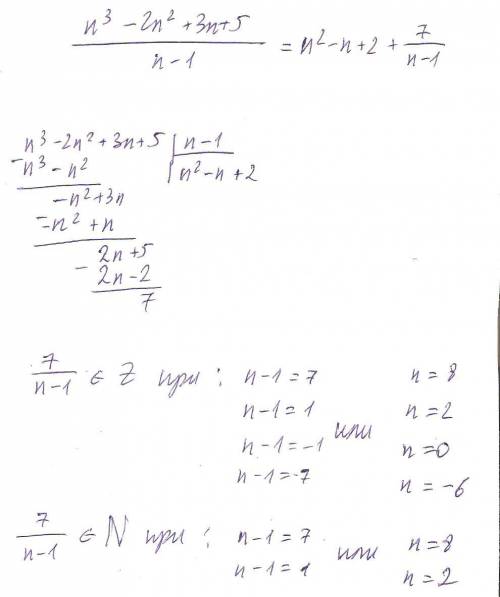 n³ - 2n² + 3n + 5 / n - 1 = n² - n + 2 + 7 / n - 1
n³ - 2n² + 3n + 5 | n - 1
- n³ - n² | n² - n + 2
- n² + 3n
- -n² + n
2n + 5
- 2n - 2
7
7 / n - 1 ∈ Z при : n - 1 = 7 или n = 8
n - 1 = 1 n = 2
n - 1 = -1 n = 0
n - 1 = -7 n = -6
7 / n - 1 ∈ N при : n - 1 = 7 или n = 8
n - 1 = 1 n = 2